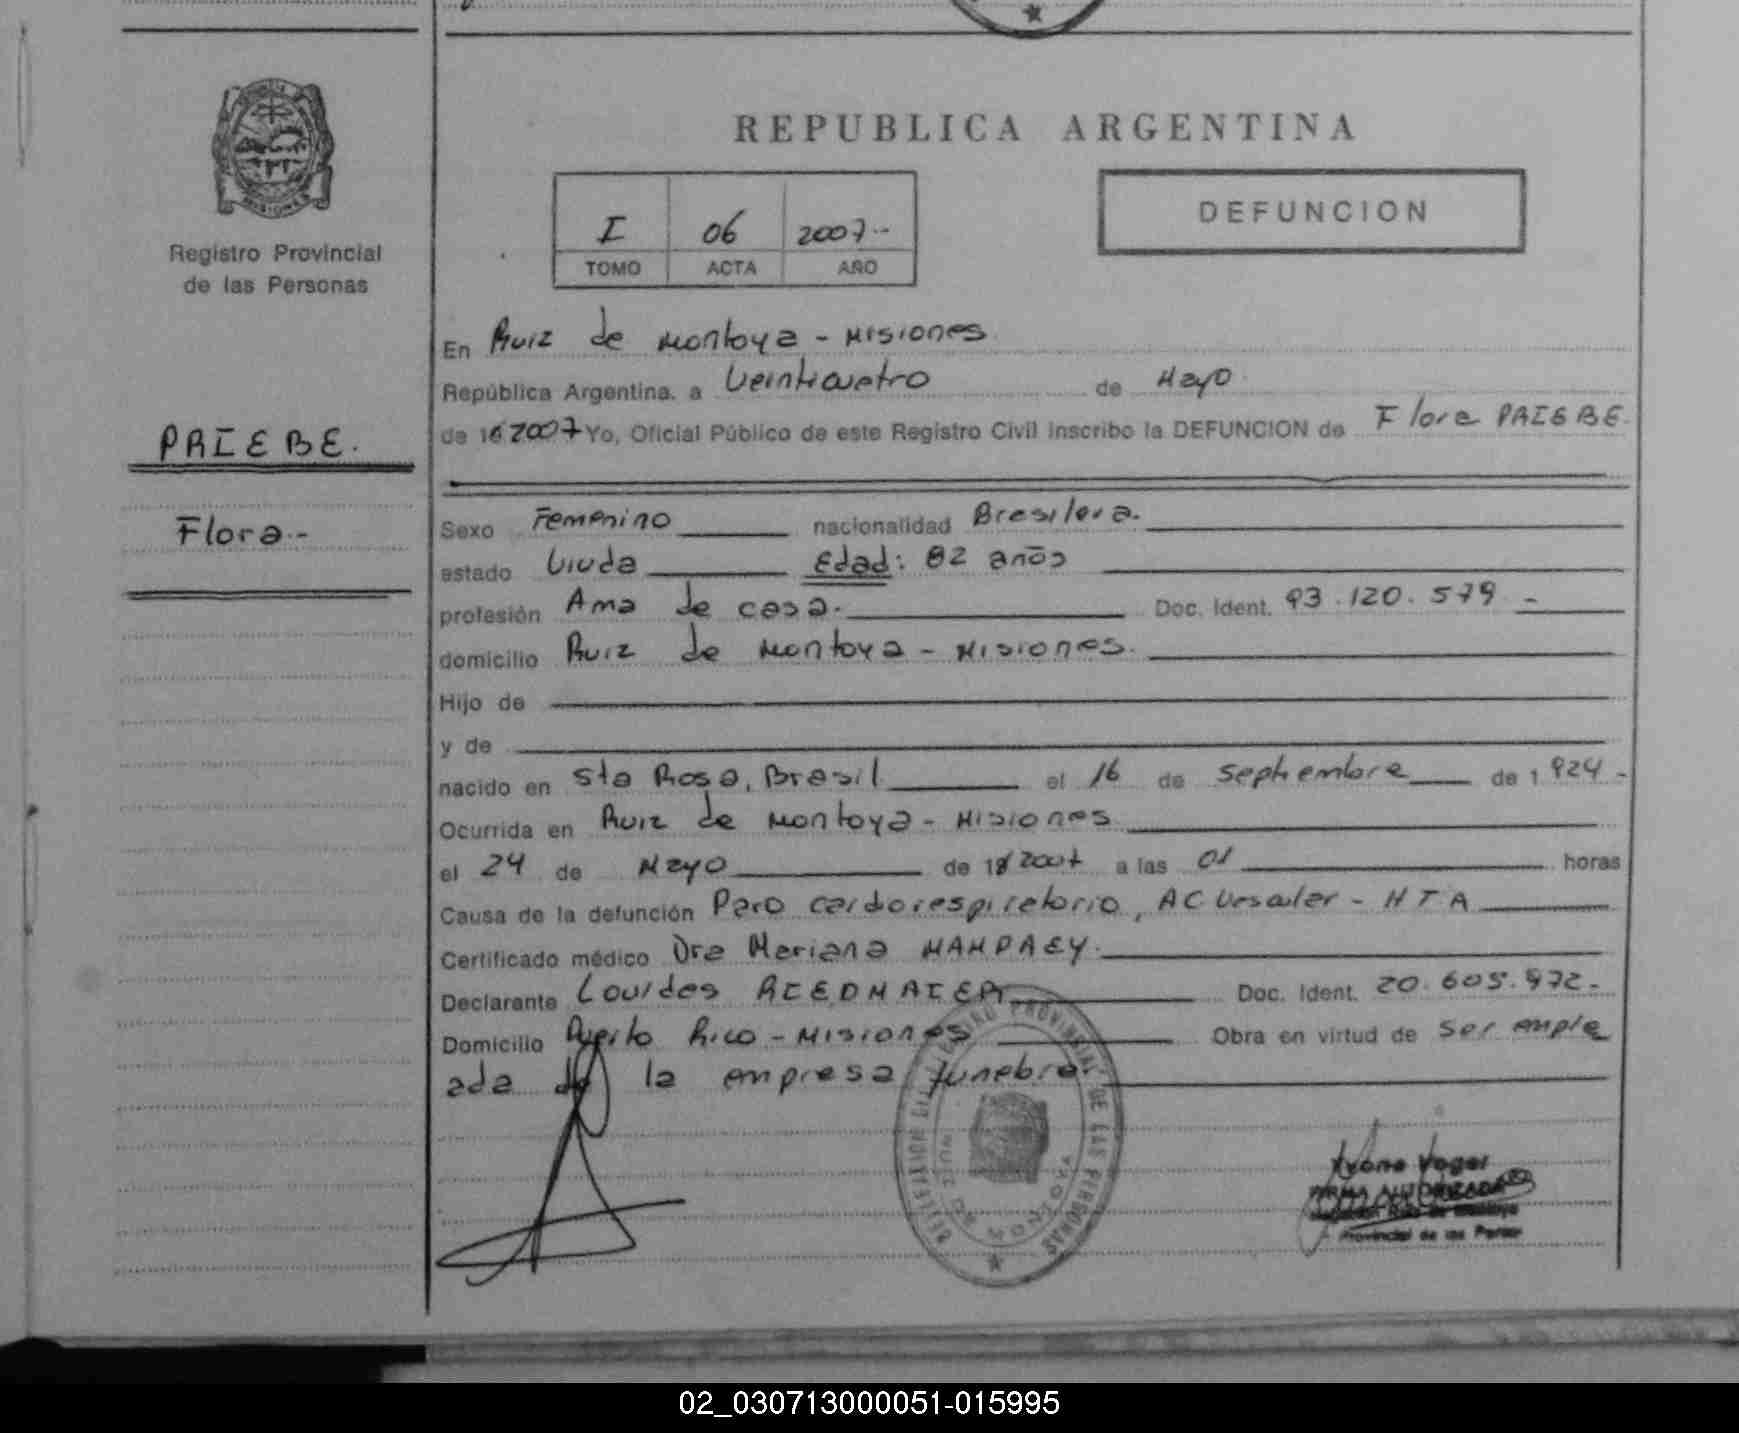 REPUBLICA ARGENTINA
MISIONES
Registro Provincial
de las Personas
I 06 2007--
TOMO ACTA AÑO
DEFUNCION
PRIEBE.
Flora.-
En Ruiz de Montoya - Misiones
República Argentina, a Veinticuatro de Mayo
de 2007 Yo, Oficial Público de este Registro Civil inscribo la DEFUNCION de Flora PRIEBE.
Sexo Femenino nacionalidad Brasilera.
estado Viuda Edad: 82 años
profesión Ama de casa. Doc. Ident. 93.120.579 -
domicilio Ruiz de Montoya - Misiones.
Hijo de
y de
nacido en Sta Rosa, Brasil el 16 de Septiembre de 1924-
Ocurrida en Ruiz de Montoya - Misiones
el 24 de Mayo de 2007 a las 01 horas
Causa de la defunción Paro cardorespiratorio, AC Vascular - HTA
Certificado médico Dra Mariana
Declarante Lourdes RIEDMAIER Doc. Ident. 20.605.972-
Domicilio Puerto Rico - Misiones Obra en virtud de ser emple
ada de la empresa funebre.
REGISTRO PROVINCIAL DE LAS PERSONAS
RUIZ DE MONTOYA
Yvone Vogel
FIRMA AUTORIZADA
Provincial de las Person
02_030713000051-015995